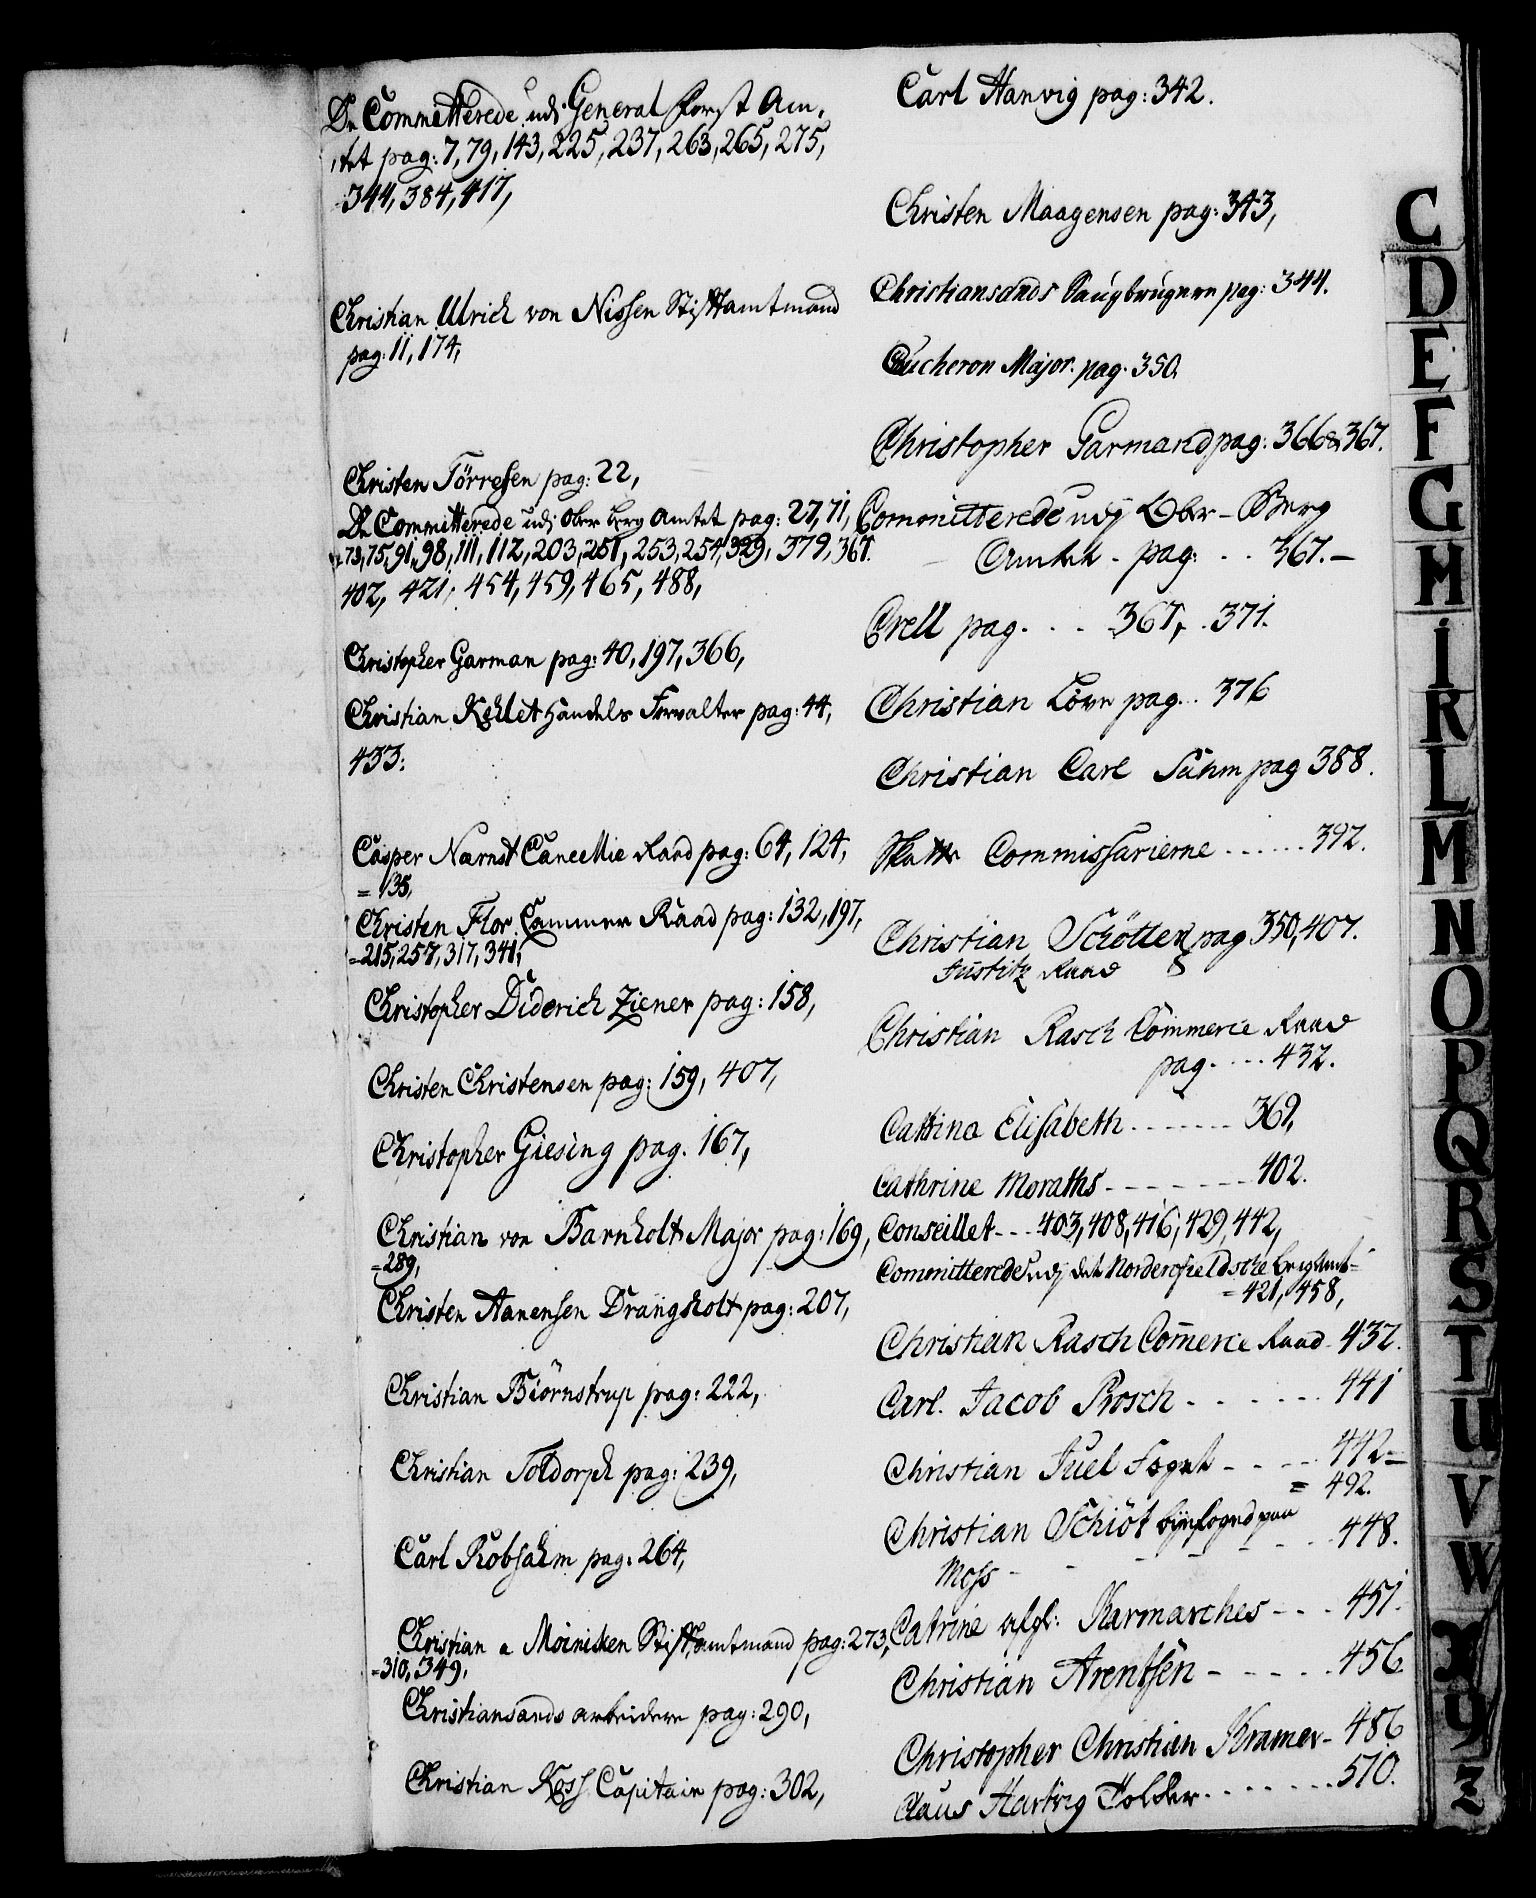 De Committerede udi General Forst Am,
,tet pag: 7, 79, 143, 225, 237, 263, 265, 275,
344, 384, 417,
Christian Ulrich von Nissen Stiftamtmand
pag: 11, 174,
Christen Törresen pag: 22,
De Committerede udi Ober Berg Amtet pag: 27, 71,
73, 75, 91, 98, 111, 112, 203, 251, 253, 254, 329, 379, 367.
402, 421, 454, 459, 465, 488,
Christopher Garman pag: 40, 197, 366,
Christian Kehlet Handels Forvalter pag: 44,
433:
Casper Nærnst Cancellie Raad pag: 64, 124,
= 135,
Christen Flor Cammer Raad pag: 132, 197,
=215, 257, 317, 341,
Christopher Diderich Ziener pag: 158,
Christen Christensen pag: 159, 407,
Christopher Giesing pag. 167,
Christian von Barnholt Major pag: 169,
=289,
Christen Aanensen Drangsholt pag: 207,
Christian Biörnstrup pag: 222,
Christian Toldorph pag: 239,
Carl Robsahm pag: 264,
Christian a Moinichen Stiftamtmand pag: 273,
=310, 349.
Christiansands arbeidere pag: 290,
Christian Koss Capitain pag: 302,
Carl Hanvig pag: 342.
Christen Maagensen pag: 343,
Christiansands Saugbrugere pag: 344.
Cucheron Major. pag. 350.
Christopher Garmand pag: 366 & 367.
Committerede udj Ober-Berg
Amtet - pag: . . 367. –
Crell pag. . . . 367, . 371.
Christian Löve pag. . . 376
Christian Carl Suhm pag 388.
Skatte Commissarierne . . . . . . 392.
Christian Schötter pag 350, 407.
Justitz Raad
Christian Rasch Commerce Raad
pag. . . . . 432.
Cathrina Elisabeth . . . . . . . 369,
Cathrine Moraths - - - - - - - 402.
Conseillet - - - 403, 408, 416, 429, 442,
Committerede udj det Nordenfieldsche bergAmt =
= 421, 458,
Christian Rasch Comerce Raad - 432.
Carl. Jacob Prosch . . . . . . 441
Christian Juel Foget - - - - 442 =
= 492.
Christian Schiöt byefoged paa
Moss - - - - - - . 448.
Catrine afgl: Karmarches - - - 451.
Christian Arentsen - - - - - 456
Christopher Christian Kramer - 486
Claus Hartvig Tolder . . . . . . . 510.
C
D
E
F
G
H
I
K
L
M
N
O
P
Q
R
S
T
U
V
W
X
Y
Z